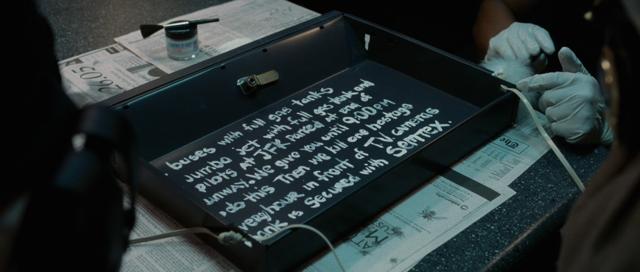 buses with full gas tanks
Jumbo jet with full gas tank and
pilots at JFK parked at one of
unway. We give you until 9.00PM
do this Then we kill one hostage
very hour in front of TV cameras
ank is secured with Semtex.
26.05